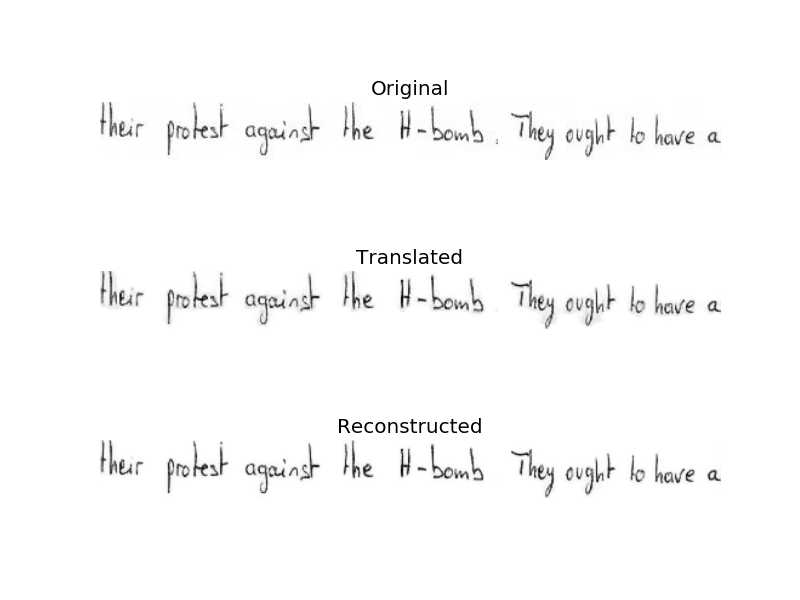 Original
their protest against the H-bomb. They ought to have a
Translated
their protest against the H-bomb They ought to have a
Reconstructed
their protest against the H-bomb They ought to have a